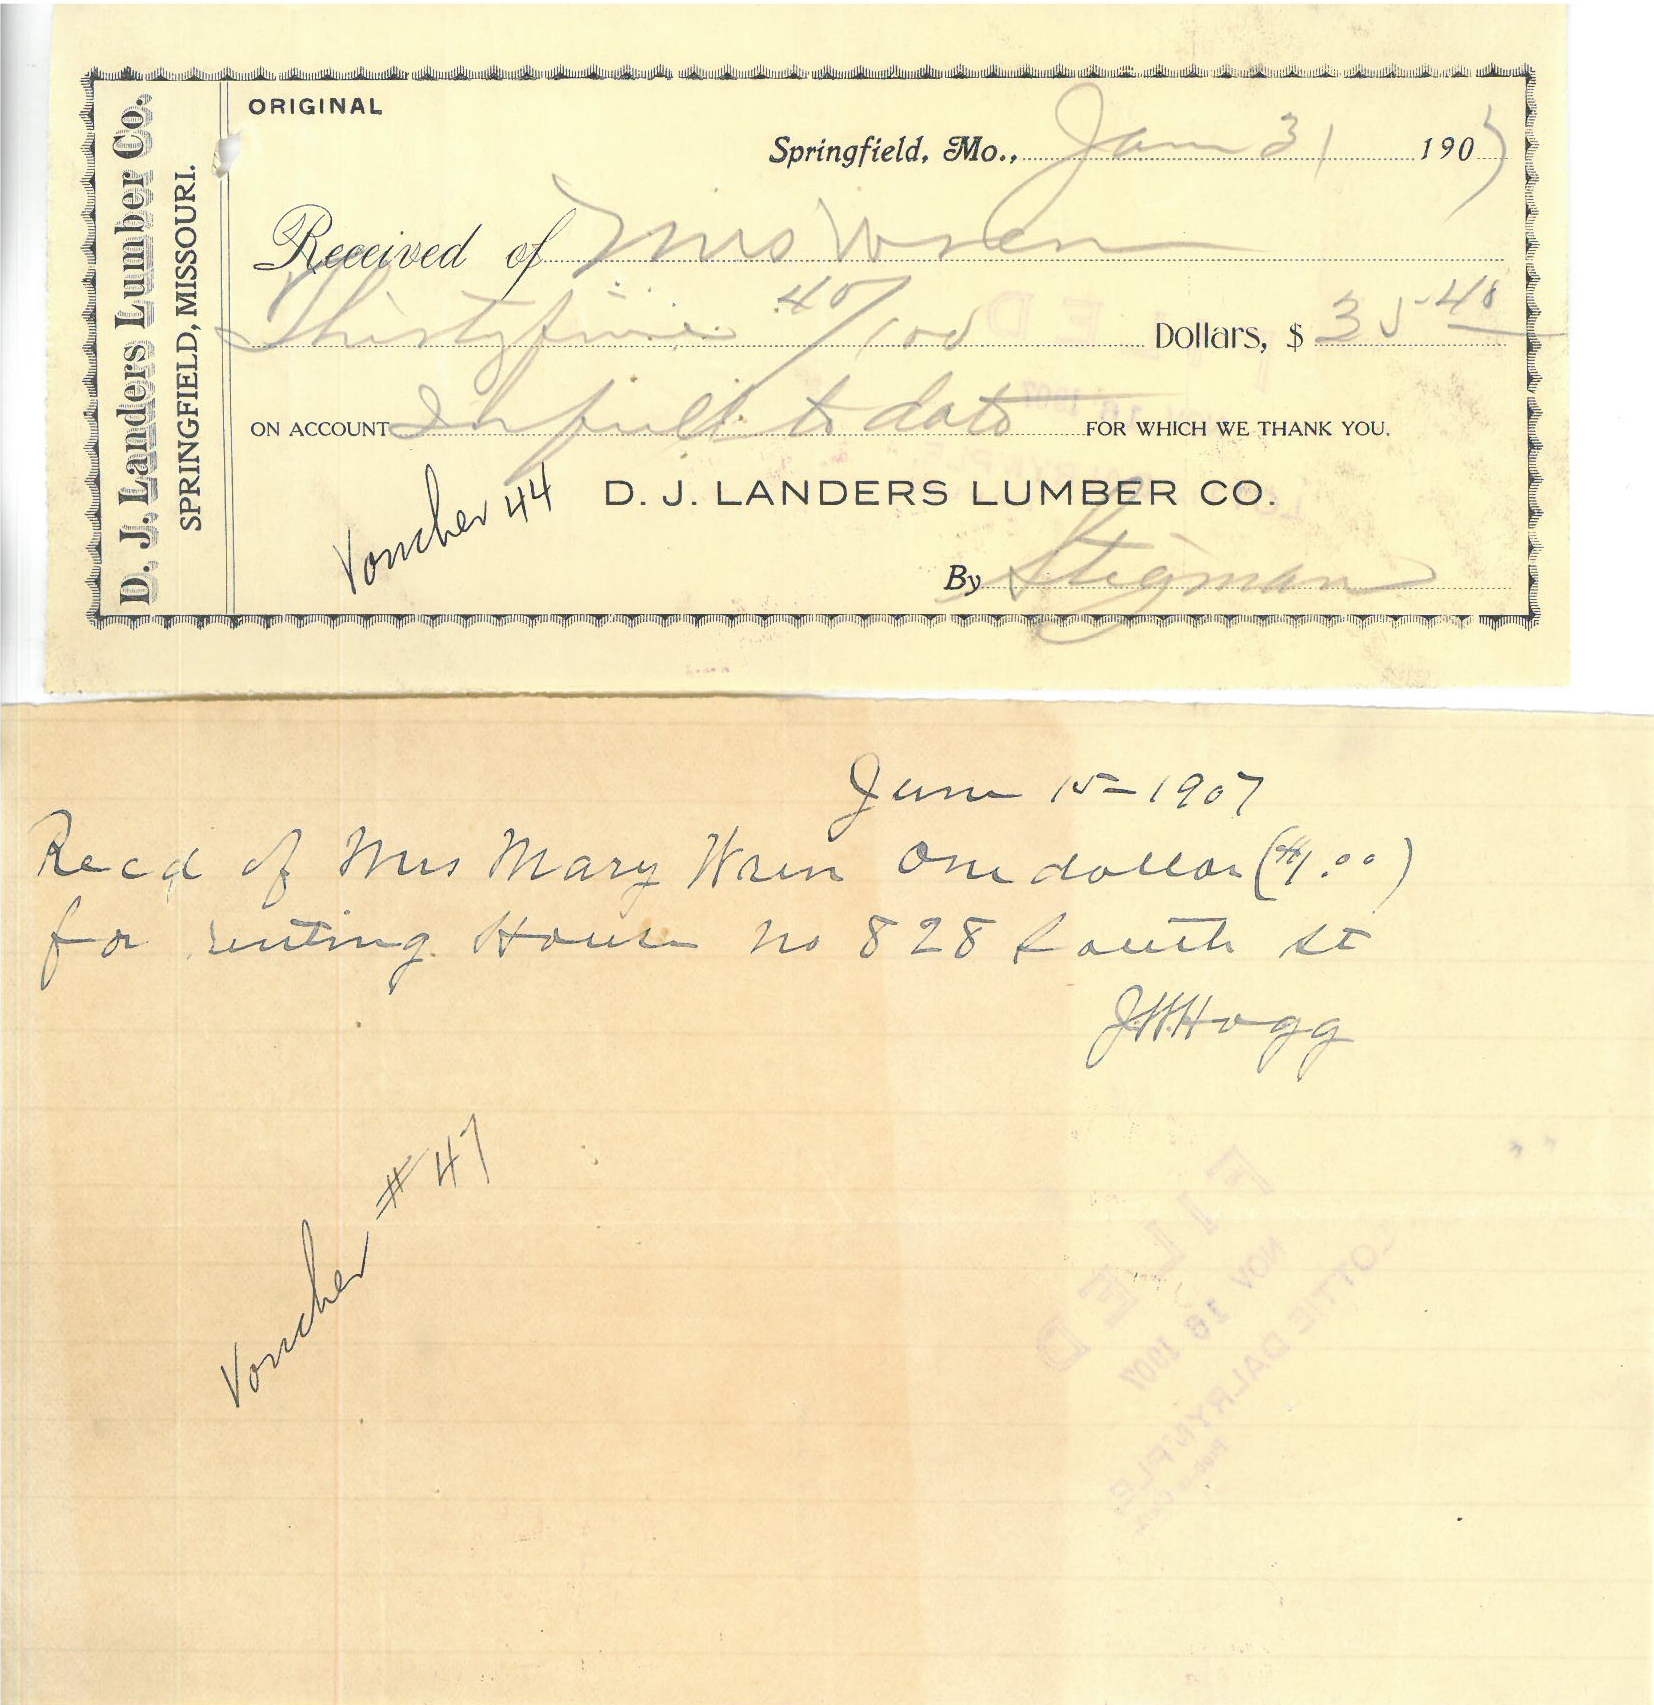 D. J. Landers Lumber Co.
SPRINGFIELD, MISSOURI.
ORIGINAL
Springfield, Mo., Jan 31 1907
Received of Mrs Wren
Thirtyfive 40/100 Dollars, $ 35.40
ON ACCOUNT In full to date FOR WHICH WE THANK YOU.
Voucher 44
D. J. LANDERS LUMBER CO.
By Stigman
June 15-1907
Recd of Mrs Mary Wren One dollar ($1.00)
for renting House No 828 South St
J.W.Hogg
Voucher # 47
FILED
NOV 16 1907
LOTTIE DALRYMPLE